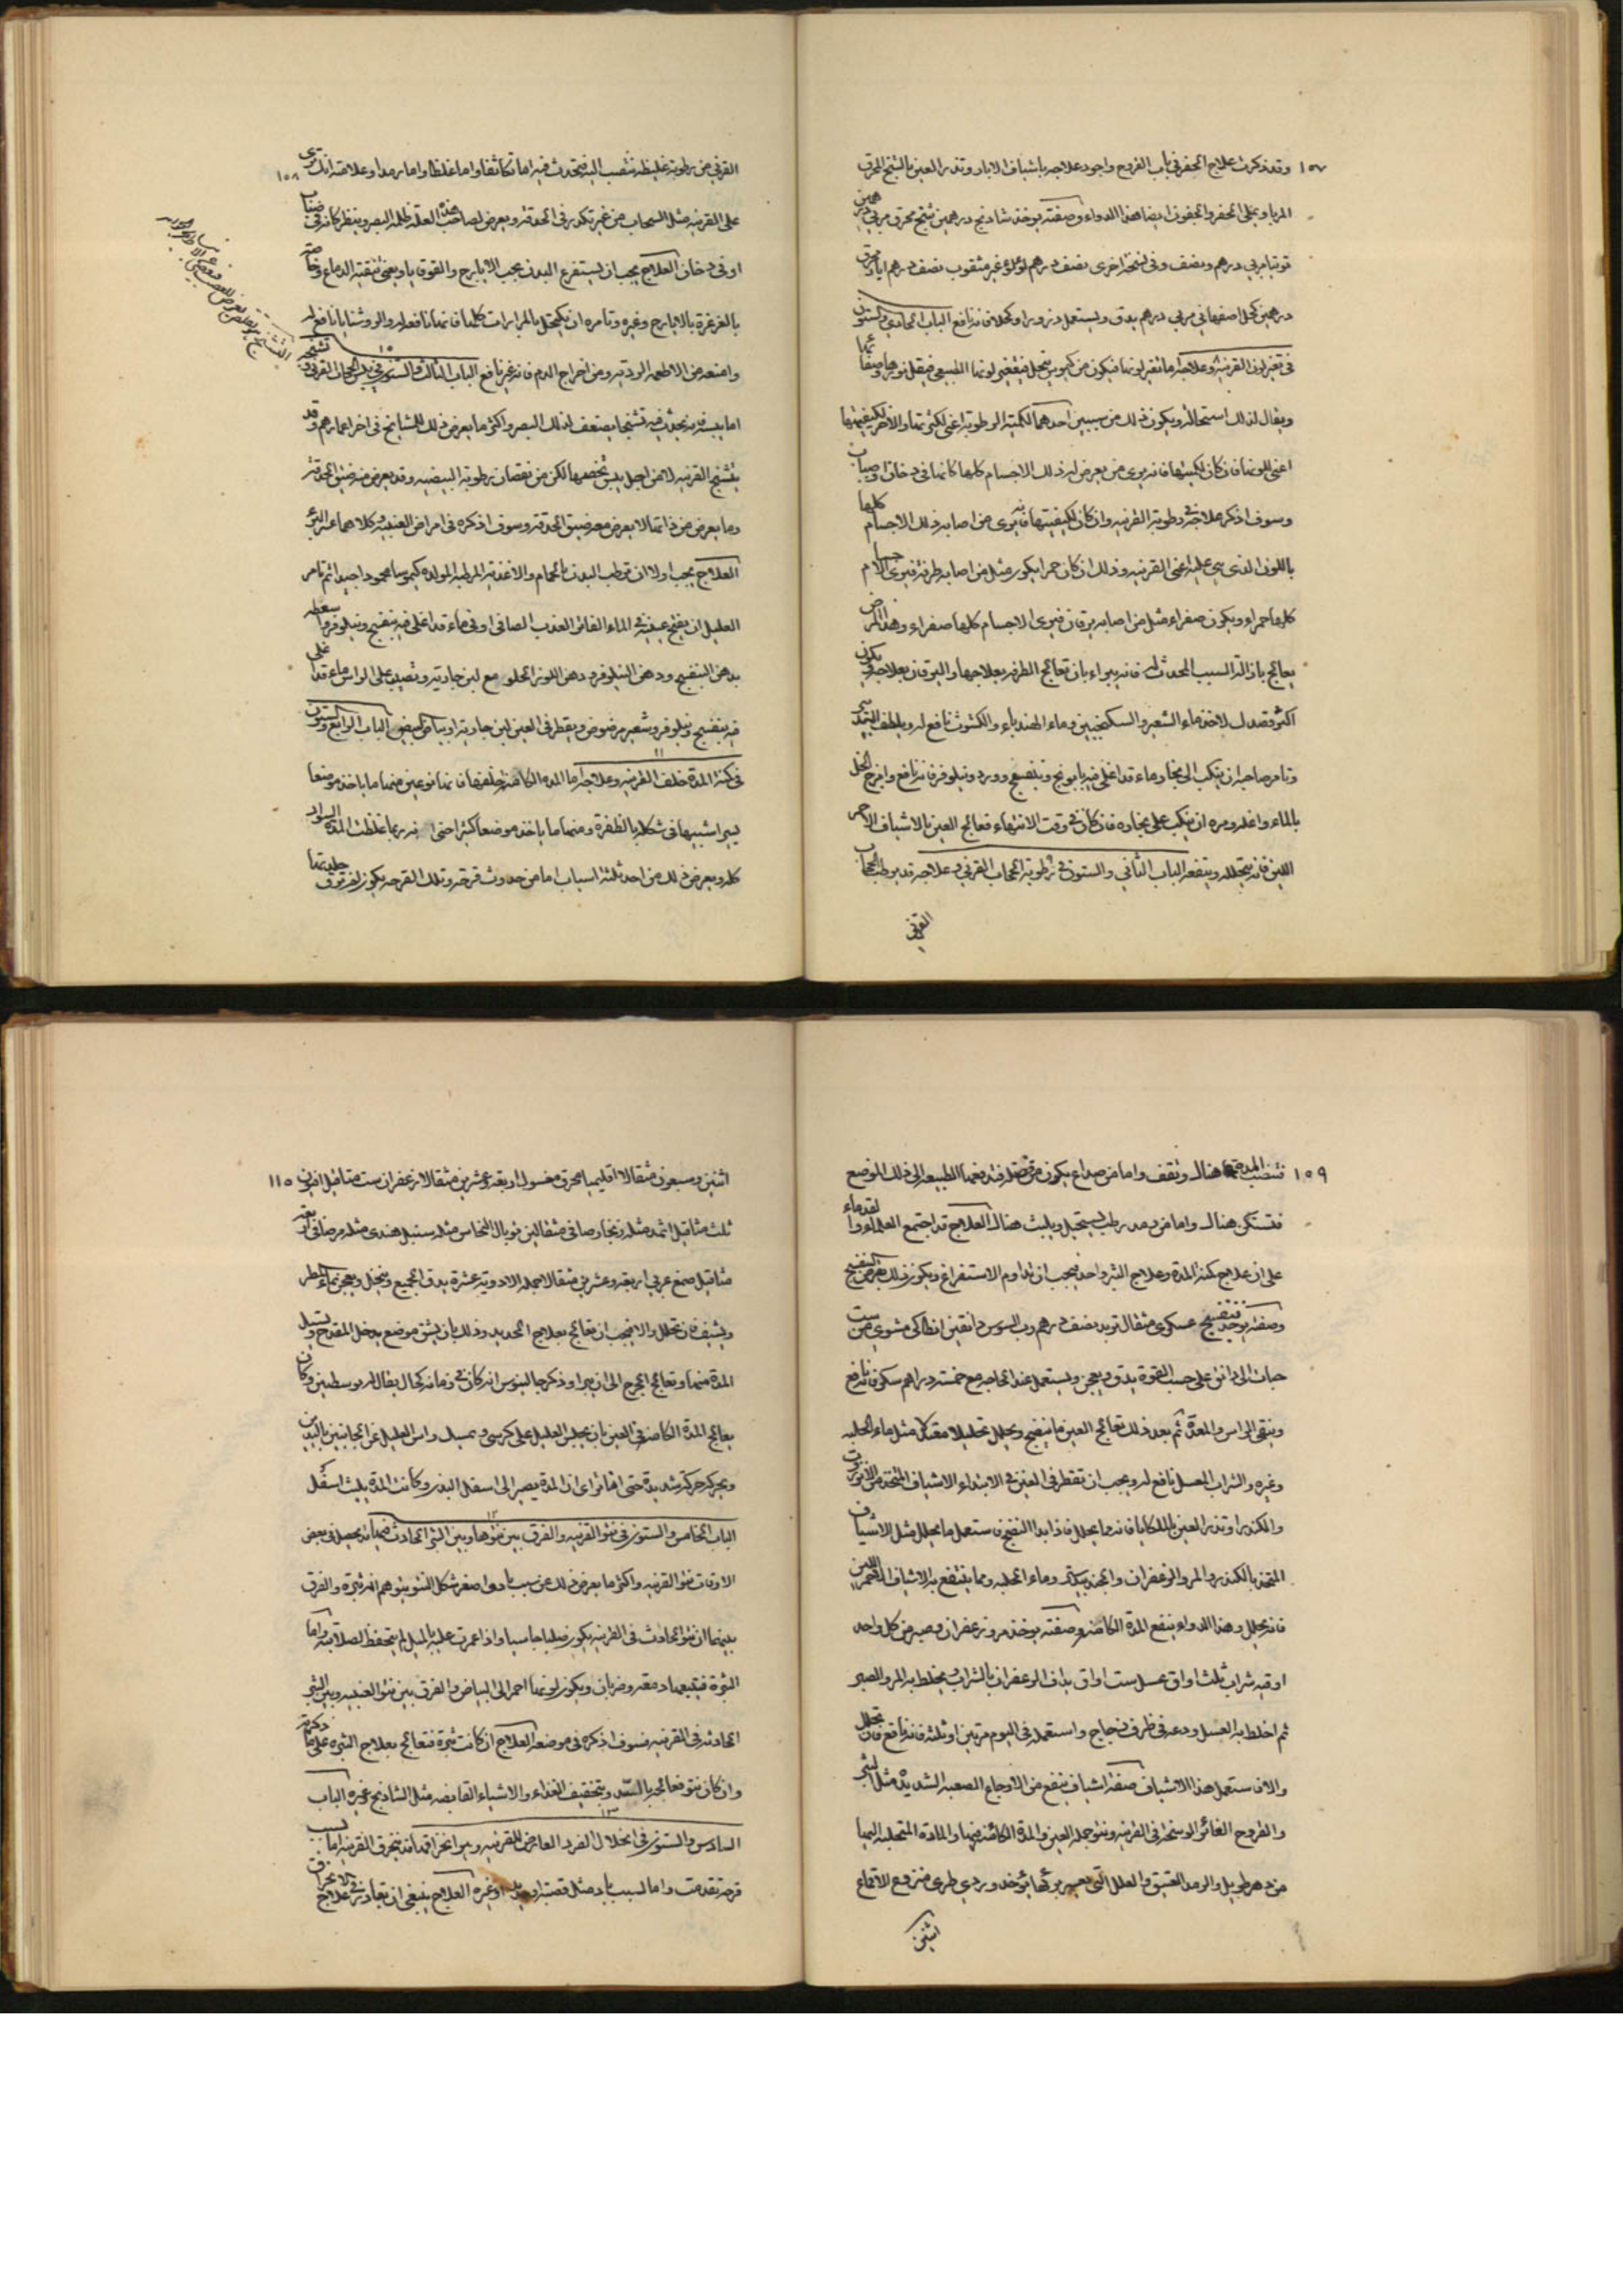 ١٥٧
وقد ذكرت علاج الحفر في باب القروح واجود علاجه باشياف الابار وتذر العين بالشيح المحرق
المربا ويجلى الحفر والجفون ايضا هذا الدواء وصفته يوخذ شادنج درهمين شيح محرق مربى درهمين
توتيا مربى درهم ونصف وفي نسخة اخرى نصف درهم لؤلؤ غير مثقوب نصف درهم ابار محرق
درهمين كحل اصفهاني مربى درهم يدق ويستعمل ذرورا وكحلا فانه نافع الباب الحادي والستون
في تغير لون القرنية وعلاجه اما تغير لونها فيكون من كيموس ينحل فيغير لونها الطبيعي فيقل نورها وصفائها
ويقال لذلك استحالة ويكون ذلك من سببين احدهما لكمية الرطوبة اعني لكثرتها والاخر لكيفيتها
اعني للونها فان كان لكميتها فانه يرى من يعرض له ذلك الاجسام كلها كانها في دخان او ضباب
وسوف اذكر علاجه في رطوبة القرنية وان كان لكيفيتها فانه يرى من اصابه ذلك الاجسام كلها
باللون الذي هي عليه اعني القرنية وذلك ان كان حمرا يكون مثل من اصابه طرفة فيرى الاجسام
كلها حمراء ويكون صفراء مثل من اصابه يرقان فيرى الاجسام كلها صفراء وهذا المرض
يعالج بازالة السبب المحدث له فانه يبراء بان تعالج الطرفة بعلاجها واليرقان بعلاجه ويكون
اكثر قصدك لاخذ ماء الشعير والسكنجبين وماء الهندباء والكشوث نافع له ويلطف التدبير
وتامر صاحبه ان ينكب الى بخار ماء قد اغلي فيه بابونج وبنفسج وورد ونيلوفر فانه نافع وامزج الخل
بالماء واغله ومره ان ينكب على بخاره فان كان في وقت الانتهاء فعالج العين بالاشياف الاحمر
اللين فانه يتحلله وينفعه الباب الثاني والستون في رطوبة الحجاب القرني وعلاجه قد يرطب الحجاب
القرني
١٥٨
القرني من رطوبة غليظة تنصب اليه فتحدث فيه اما تكاثفا واما غلظا واما رمدا وعلامته انك ترى
على القرنية مثل السحاب من غير تكدر في الحدقة ويعرض لصاحب هذه العلة ظلمة البصر وينظر كانه في ضباب
او في دخان العلاج يجب ان يستفرغ البدن بحب الايارج والقوقايا ويعنى بتنقية الدماغ وخاصة
بالغرغرة بالايارج وغيره وتامره ان يكتحل بالمرارات كلها فانها نافعة له والروشنايا نافع له
وامنعه من الاطعمة الردية ومن اخراج الدم فانه غير نافع الباب الثالث والستون في يبس الحجاب القرني وتشنجه
اما يبسه فانه يحدث فيه تشنجا يضعف لذلك البصر واكثر ما يعرض ذلك للمشايخ في اخر اعمارهم وقد
يتشنج القرنية لا من اجل يبس يخصها لكن من نقصان رطوبة البيضية وقد يعرض منه ضيق الحدقة
وما يعرض من ذاتها لا يعرض معه ضيق الحدقة وسوف اذكره في امراض العنبية وكلاهما عسر البرء
العلاج يجب اولا ان ترطب البدن بالحمام والاغذية المرطبة المولدة كيموسا محمودا جيدا ثم تامر
العليل ان يفتح عينيه في الماء الفاتر العذب الصافي او في ماء قد اغلي فيه بنفسج ونيلوفر واسعطه
بدهن البنفسج ودهن النيلوفر ودهن اللوز الحلو مع لبن جارية وتصب على الراس ماء قد اغلى
فيه بنفسج ونيلوفر وشعير مرضوض ويقطر في العين لبن جارية او بياض البيض الباب الرابع والستون
في كمنة المدة خلف القرنية وعلاجه اما المدة الكامنة خلفها فانها نوعين منها ما ياخذ موضعا
يسيرا شبيها في شكله بالظفرة ومنها ما ياخذ موضعا كثيرا حتى انه ربما غطت المدة السواد
كله ويعرض ذلك من احد ثلثة اسباب اما من حدوث قرحة وتلك القرحة يكون لم تخرق جلدتها
١٥٩
فتنصب المدة هناك وتقف واما من صداع يكون من فضلة قد دفعها الطبيعة الى ذلك الموضع
فتستكن هناك واما من رمد رطب يستحيل ويلبث هناك العلاج قد اجتمع العلماء والقدماء
على ان علاج كمنة المدة وعلاج البثر واحد فيجب ان تداوم الاستفراغ ويكون ذلك بقرص البنفسج
وصفته يوخذ بنفسج عسكري مثقال تربد نصف درهم رب السوس دانقين انطاكي مشوي من ست
حبات الى دانق على حسب القوة يدق ويعجن ويستعمل عند الحاجة مع خمسة دراهم سكر فانه نافع
وينقى الراس والمعدة ثم بعد ذلك تعالج العين بما ينضج ويحلل تحليلا معتدلا مثل ماء الحلبة
وغيره والشراب المعسل نافع له ويجب ان تقطر في العين في الابتداء الاشياف المتخذ من الانزروت
والكندر او تذر العين بالملكايا فانه مما يحلل فاذا بدا النضج فاستعمل ما يحلل مثل الاشياف
المتخذ بالكندر والمر والزعفران والجندبيدستر وماء الحلبة ومما ينتفع به الاشياف الاحمر اللين
فانه يحلل وهذا الدواء ينفع المدة الكامنة وصفته يوخذ مر وزعفران وصبر من كل واحد
اوقية شراب ثلث اواق عسل ست اواق يذاف الزعفران بالشراب ويخلط به المر والصبر
ثم اخلط به العسل ودعه في ظرف زجاج واستعمله في اليوم مرتين او ثلثة فانه نافع فان تحلل
والا فاستعمل هذا الاشياف صفة اشياف ينفع من الاوجاع الصعبة الشديدة مثل البثر
والقروح الغائرة الوسخة في القرنية ونتو جملة العين والمدة الكائنة فيها والمادة المتحلبة اليها
من دهر طويل والرمد العتيق والعلل التي يعسر برئها يؤخذ ورد طري منزوع الاقماع
اثنين
١١٥
اثنين وسبعون مثقالا اقليميا محرق مغسول اربعة وعشرين مثقالا زعفران ست مثاقيل افيون
ثلث مثاقيل اثمد مثله زنجار صافي مثقالين توبال النحاس مثله سنبل هندي مثله مر صافي اربعة
مثاقيل صمغ عربي اربعة وعشرين مثقالا جملة الادوية عشرة يدق الجميع وينخل ويعجن بماء المطر
ويشيف فان تحلل والا فيجب ان تعالج بعلاج الحديد وذلك بان يشق موضع يدخل المقدح وتسيل
المدة منها وتعالج الجرح الى ان يبرا وذكر جالينوس انه كان في زمانه كحال يقال له يوسطس وكان
يعالج المدة الكامنة في العين بان يجلس العليل على كرسي ويمسك راس العليل من الجانبين باليدين
ويحركه حركة شديدة حتى انها ترى ان المدة يصير الى اسفل البدن وكانت المدة يلبث اسفل
الباب الخامس والستون في نتو القرنية والفرق بين نتوها وبين البثر الحادث فيها انه يحصل في بعض
الاوقات نتو القرنية واكثر ما يعرض ذلك من سبب باد واصغر شكل النتو يتوهم انه بثرة والفرق
بينهما ان نتو الحادث في القرنية يكون صلبا جاسيا واذا غمزت عليه بالميل لم ينخفض لصلابته واما
البثرة فيتبعها دمعة وضربان ويكون لونها احمر الى البياض والفرق بين نتو العنبية وبين البثر
الحادثة في القرنية فسوف اذكره في موضعه العلاج ان كانت بثرة فتعالج بعلاج البثرة على ما ذكرته
وان كان نتو فعالجه بالشد وبتخفيف الغذاء والاشياء القابضة مثل الشادنج وغيره الباب
السادس والستون في انحلال الفرد العارض للقرنية وهو انخراقها انه ينخرق القرنية اما لسبب
قرحة تقدمت واما لسبب باد مثل قصبة او حديد او غيره العلاج ينبغي ان تبادر في علاج الانخراق